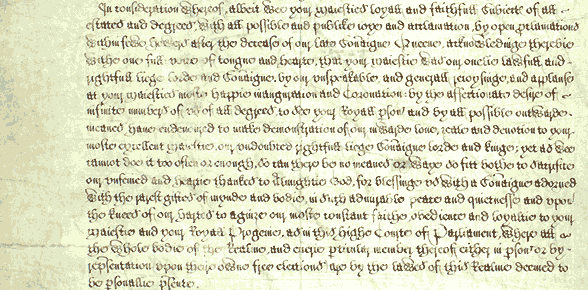 In consideration whereof, albeit wee your Maiesties loyall and faithfull Subiects of all
estates and degrees, with all possible and publike ioye and acclamation, by open proclamations
within fewe howers after the decease of our late Soveraigne Queene, acknowledginge therebie
with one full voice of tongue and hearte, that your Maiestie was our onelie lawfull and
rightfull liege lorde and Soveraigne, by our unspeakable, and generall reioysinge, and applause
at your Maiesties moste happie inauguration and Coronation; by the affectionate desire of
infinite numbers of us of all degrees to see your Royall pson, and by all possible outwarde
meanes have endevored to make demonstration of our inwarde love, zeale and devotion to your
moste excellent Maiestie, our undoubted rightfull liege Soveraigne lorde and kinge; yet as wee
cannot doe it too often or enough, so can there be no meanes or waye so fitt bothe to sacrifice
our unfeined and heartie thankes to Almightie God, for blessinge us with a Soveraigne adorned
with the rarest giftes of mynde and bodie, in such admirable peace and quietnesse and upon
the knees of our hartes to agnize our moste constant faithe, obedience and loyaltie to your
Maiestie and your Royall Progenie, as in this highe Courte of Parliament, where all
the whole bodie of the Realme, and everie pticuler member thereof either in pson or by
representation upon their owne free elections are by the lawes of this Realme deemed to
be psonallie psente.